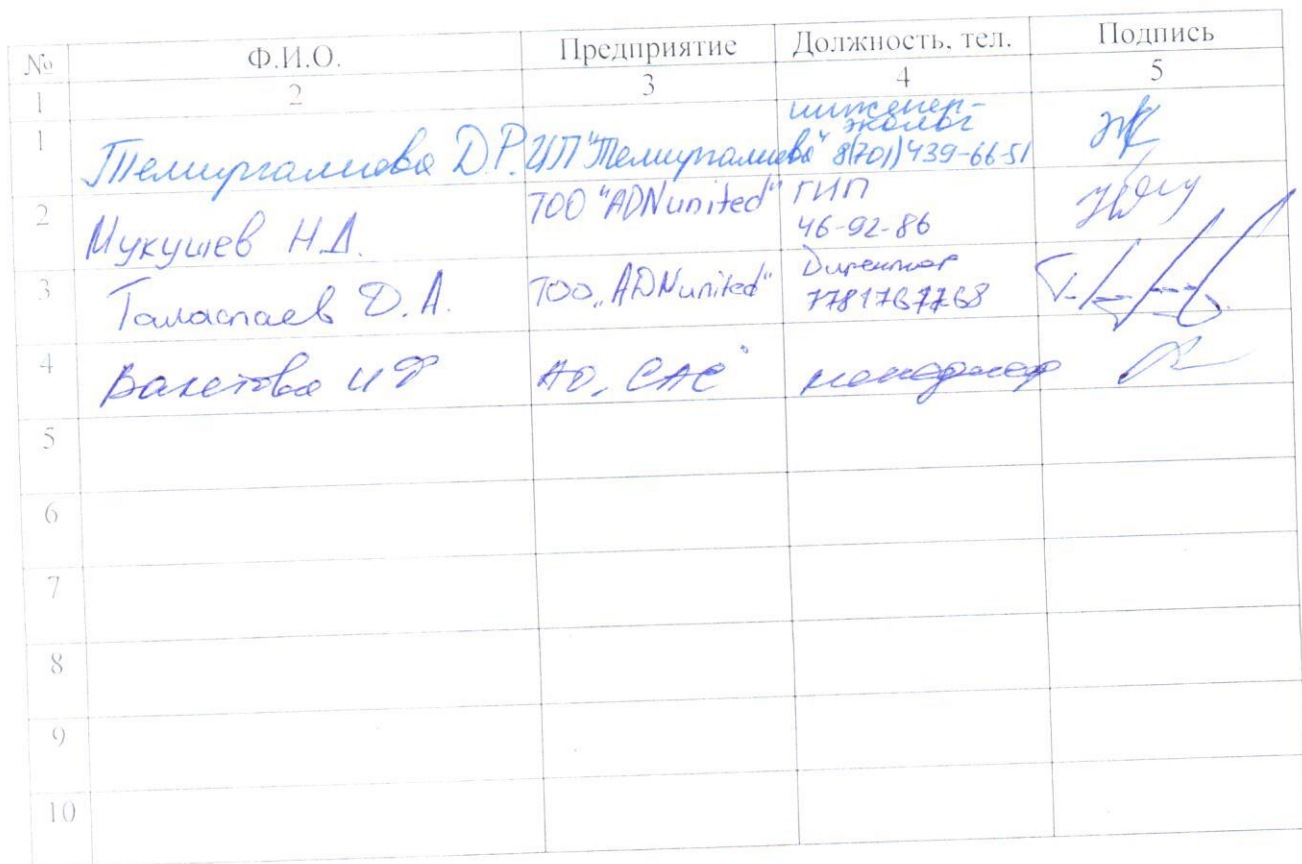 № Ф.И.О. Предприятие Должность, тел. Подпись
1 2 3 4 5
1 Темиргалиева Д.Р. ИП "Темиргалиева" инженер-эколог 8(701)439-66-51
2 Мукушев Н.Д. ТОО "ADNunited" ГИП 46-92-86
3 Таласпаев D.A. ТОО „ADNunited" Директор 7781767768
4 И Ф АО „САС" менеджер
5
6
7
8
9
10